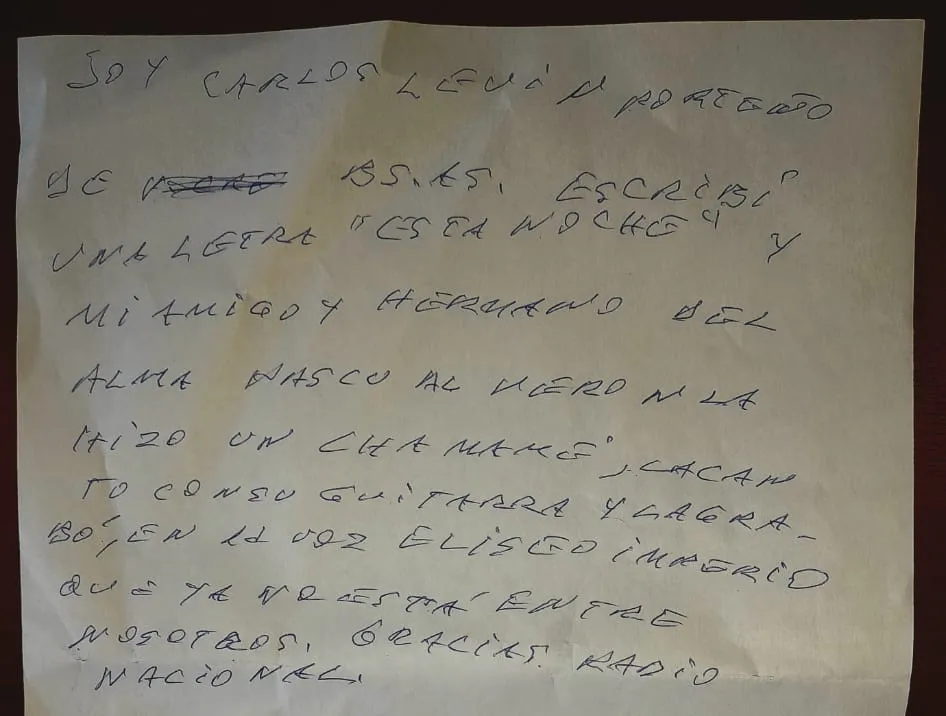 SOY CARLOS LEVÍN PORTEÑO
DE BS.AS. ESCRIBÍ
UNA LETRA "ESTA NOCHE" Y
MI AMIGO Y HERMANO DEL
ALMA NASCU AL VERON LA
HIZO UN CHAMAMÉ, LA CAN
TO CON SU GUITARRA Y LA GRA-
BÓ, EN LA VOZ ELISEO IMPERIO
QUE YA NO ESTÁ ENTRE
NOSOTROS. GRACIAS. RADIO
NACIONAL.